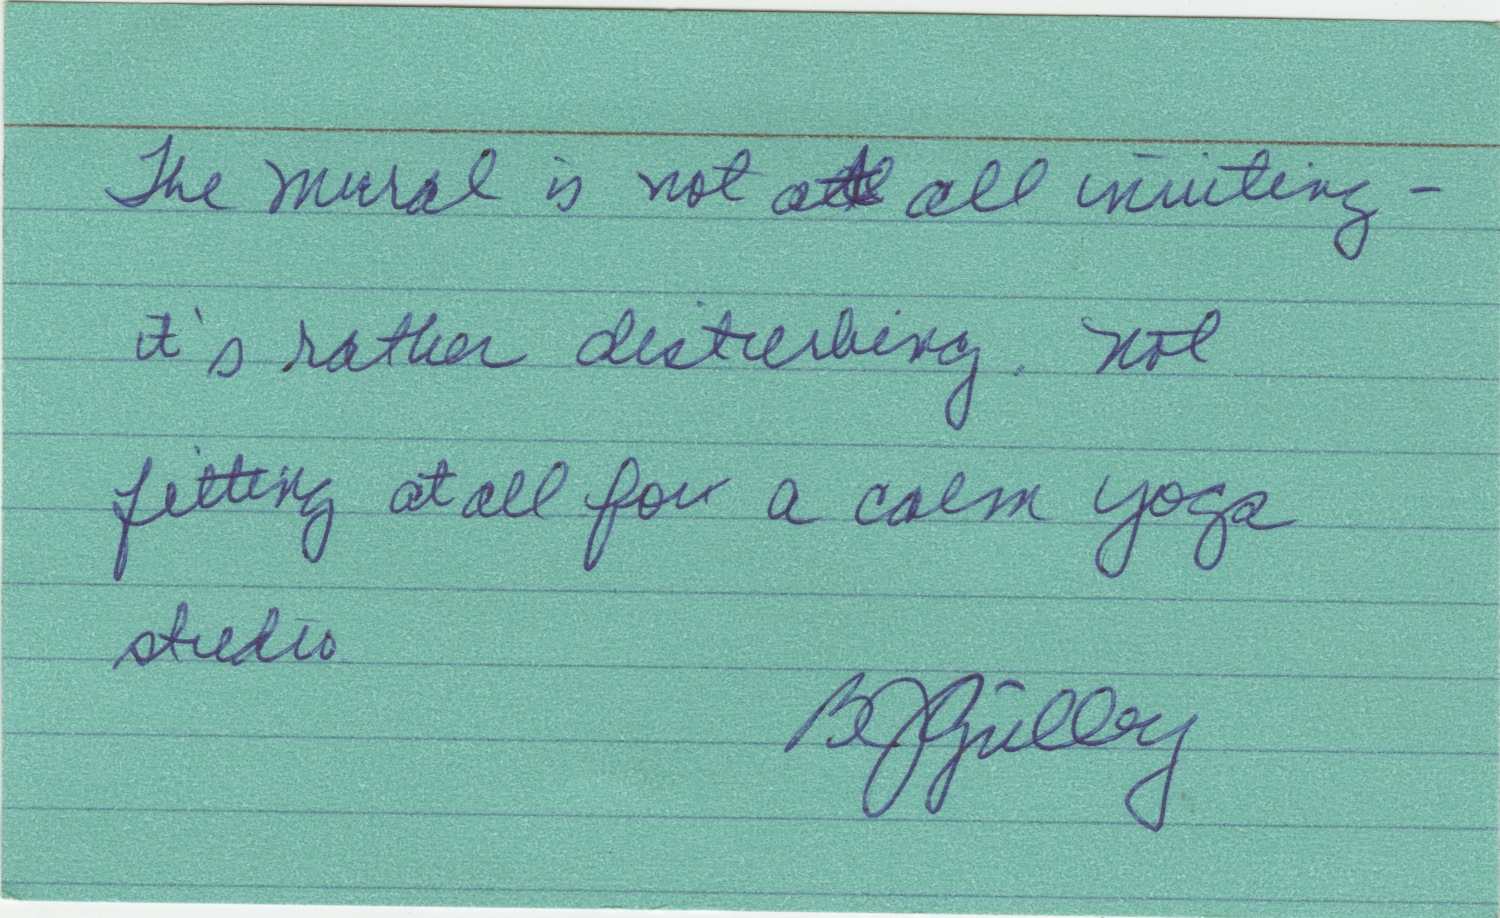 The mural is not at all inviting -
it's rather disturbing. Not
fitting at all for a calm yoga
studio
BJ Gilley